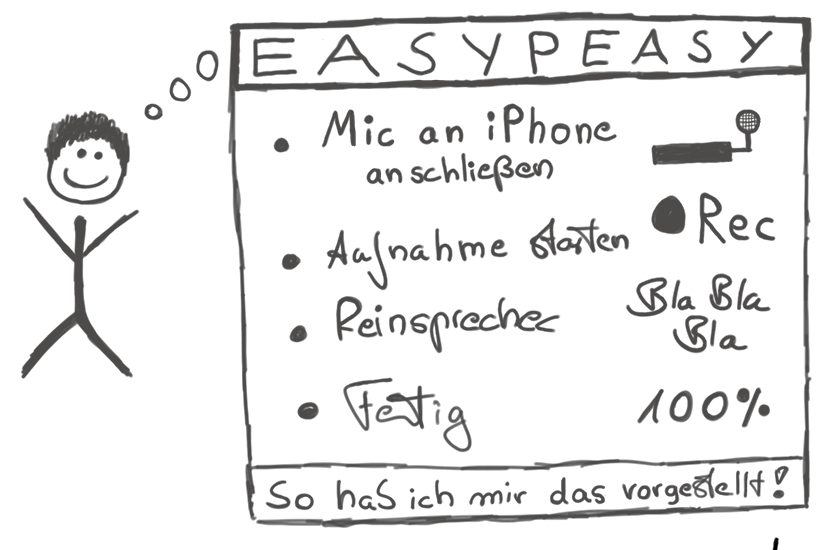 EASYPEASY
Mic an iPhone
anschließen
Aufnahme starten
Rec
Reinsprechen
Bla Bla
Bla
Fertig
100%
So hab ich mir das vorgestellt!